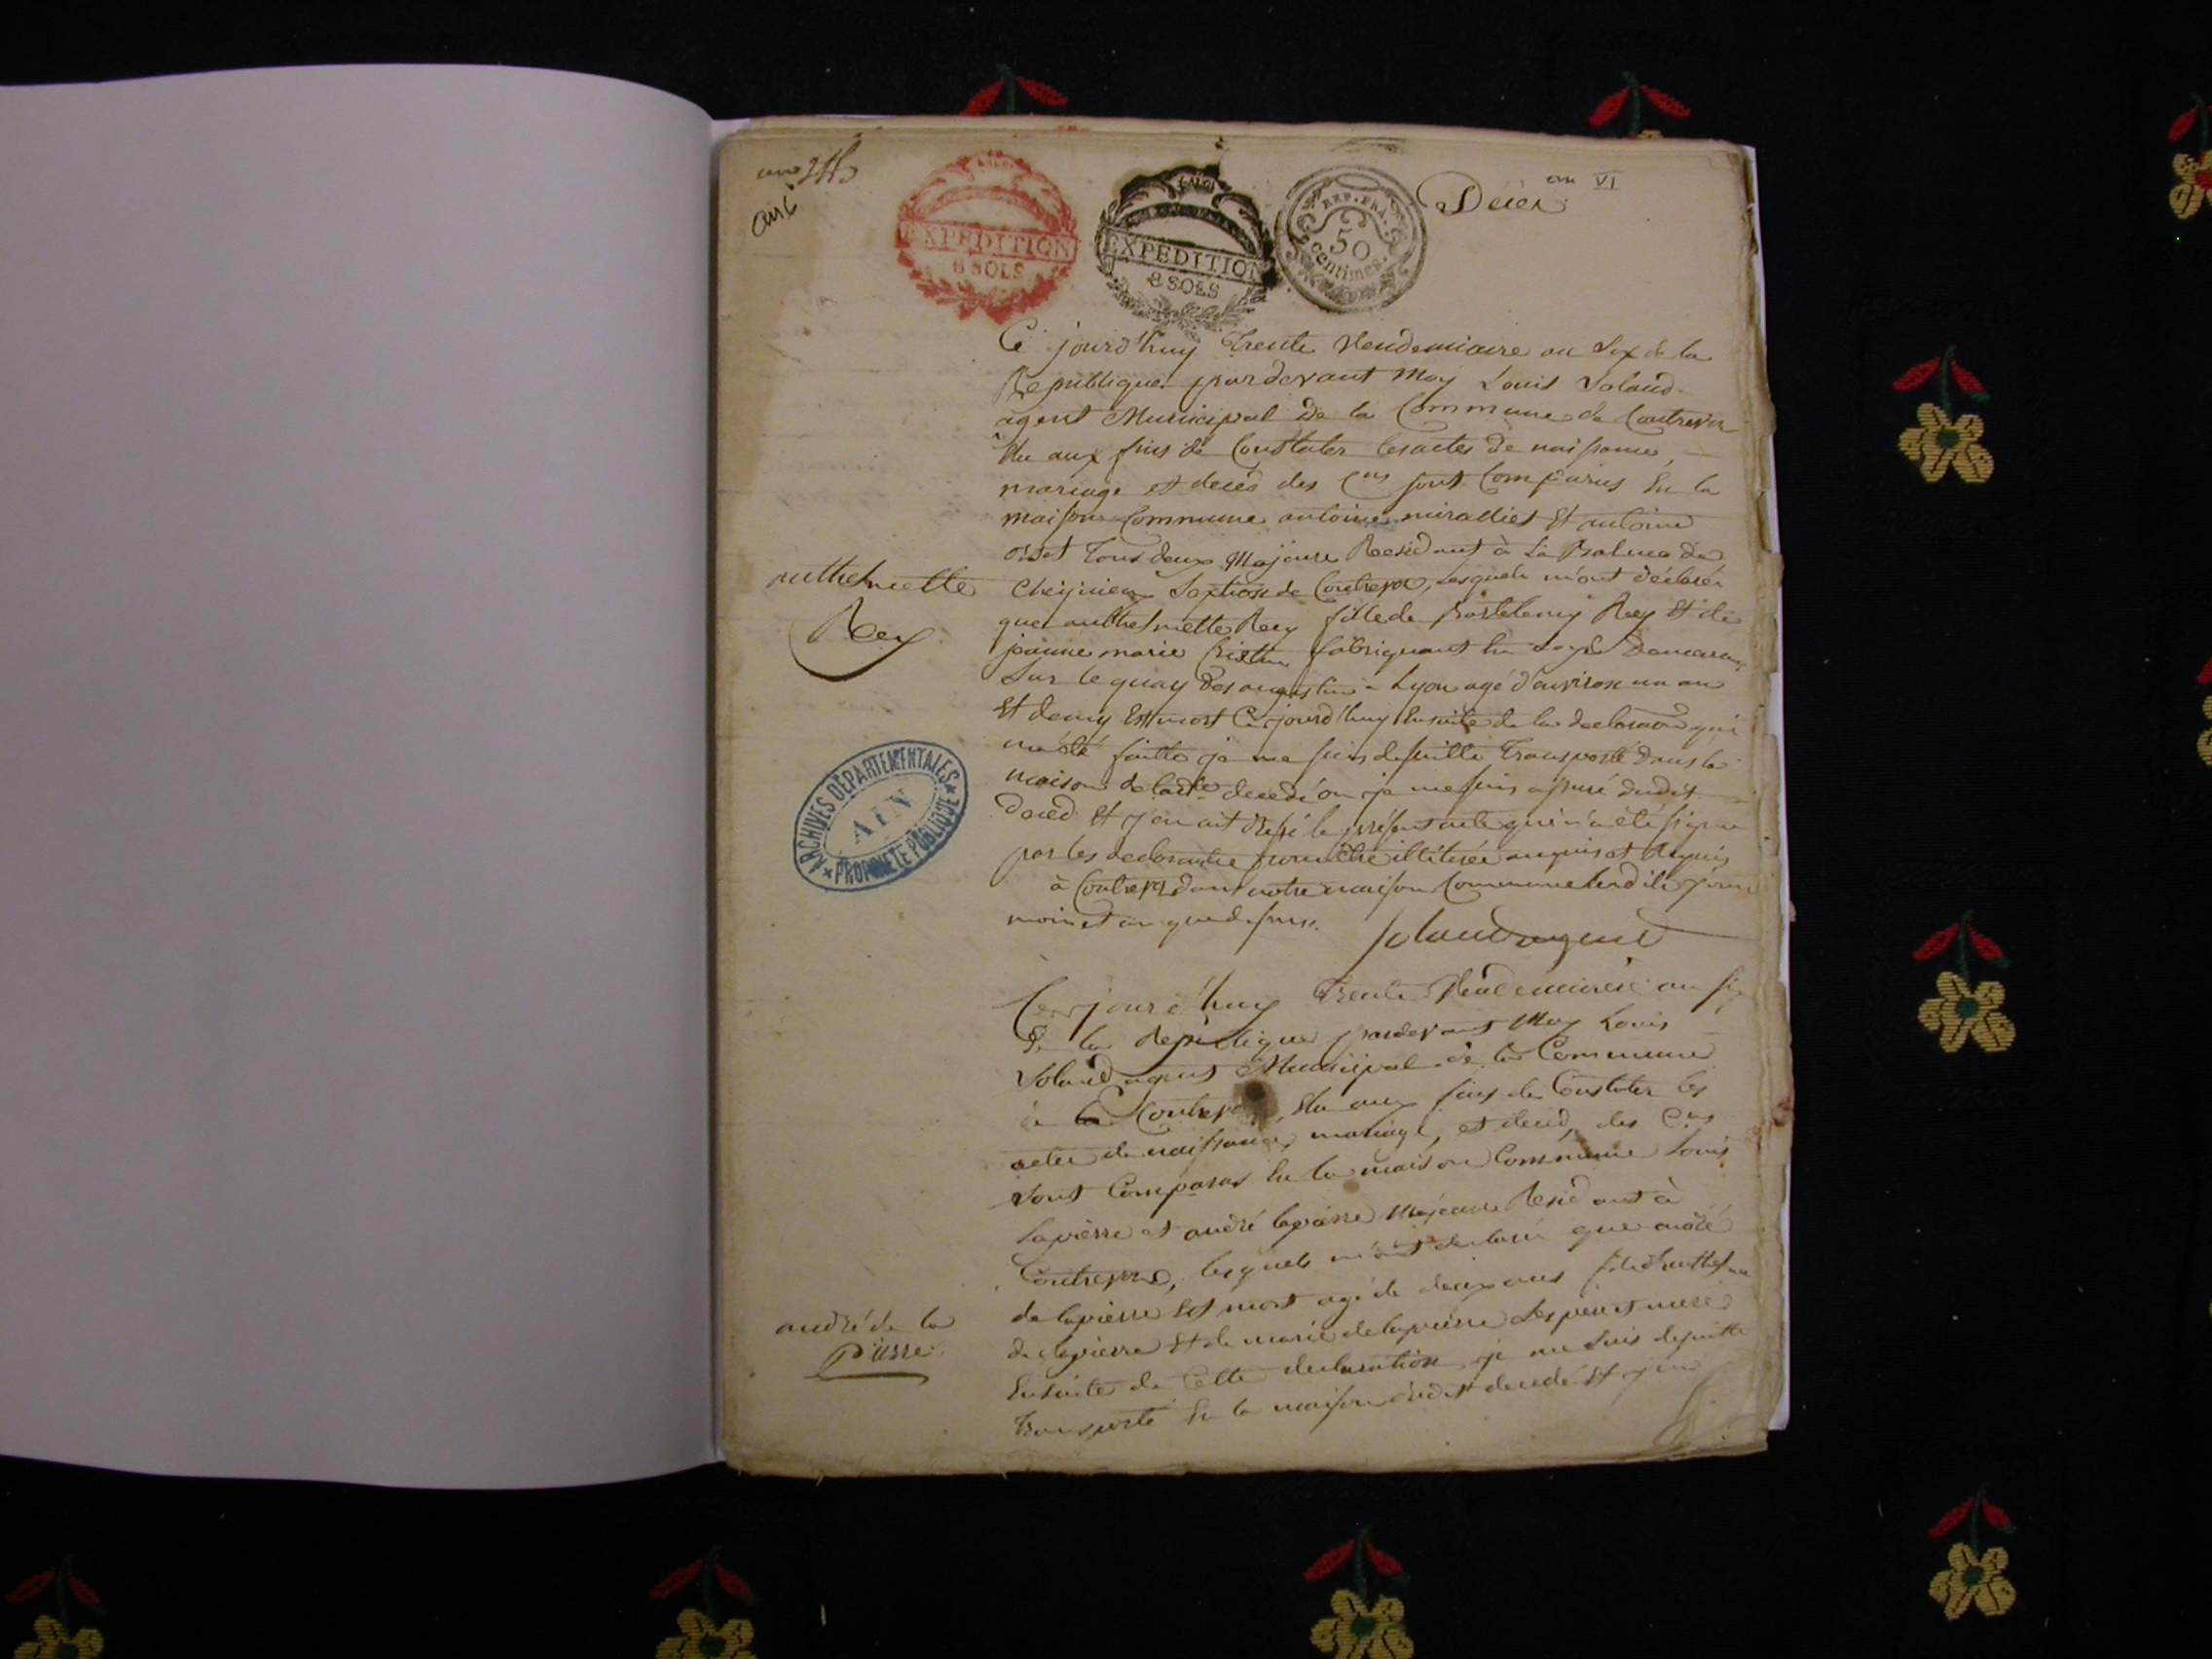 an 6
EXPEDITION
8 SOLS
EXPEDITION
8 SOLS
REP. FRA.
50
centimes.
an VI
Décès
Ce jourd'huy trente Vendemiaire an Six de la
Republique pardevant Moy Louis Soland
agent Municipal de la Commune de Contrevoz
Elu aux fins de Constater les actes de naissance,
mariage et décès des Cns sont Comparus En la
maison Commune antoine et antoine
tous deux Majeurs Residant à La Balme de
Section de Contrevoz, Lesquels m'ont déclaré
anthelmette
Rey
que anthelmette Rey fille de Bartelemy Rey Et de
jeanne marie fabriquant En
Sur le quay des augustin à Lyon agé d'environ un an
Et demy Est mort Ce jourd'huy Ensuite de la declaraon qui
m'a été faitte je me suis de suitte transporté dans la
maison de ladte decedé ou je me suis assuré dudit
Décès Et j'en ait dressé le présent acte qui n'a été signé
par les declarantes pour être illitérée enquis et Requis
à Contrevoz dans notre maison Commune Lesdits jour
mois et an que dessus.
Soland agent
ARCHIVES DÉPARTEMENTALES
AIN
PROPRIÉTÉ PUBLIQUE
Ce jourd'huy trente Vendemiaire an six
De la Republique pardevant Moy Louis
Soland agent Municipal de la Commune
de Contrevoz, Elu aux fins de Constater les
actes de naissance, mariage, et décès, des Cns
sont Comparus En la maison Commune Louis
Lapierre et andré lapierre Majeure Residant à
Contrevoz, lesquels m'ont declaré que andré
andré de la
pierre
de lapierre Est mort agé de deux ans fils d'anthelme
de lapierre Et de marie de lapierre Ses pere et mere
Ensuite de Cette declaration je me suis de suitte
transporté En la maison dudit decedé Et j'en